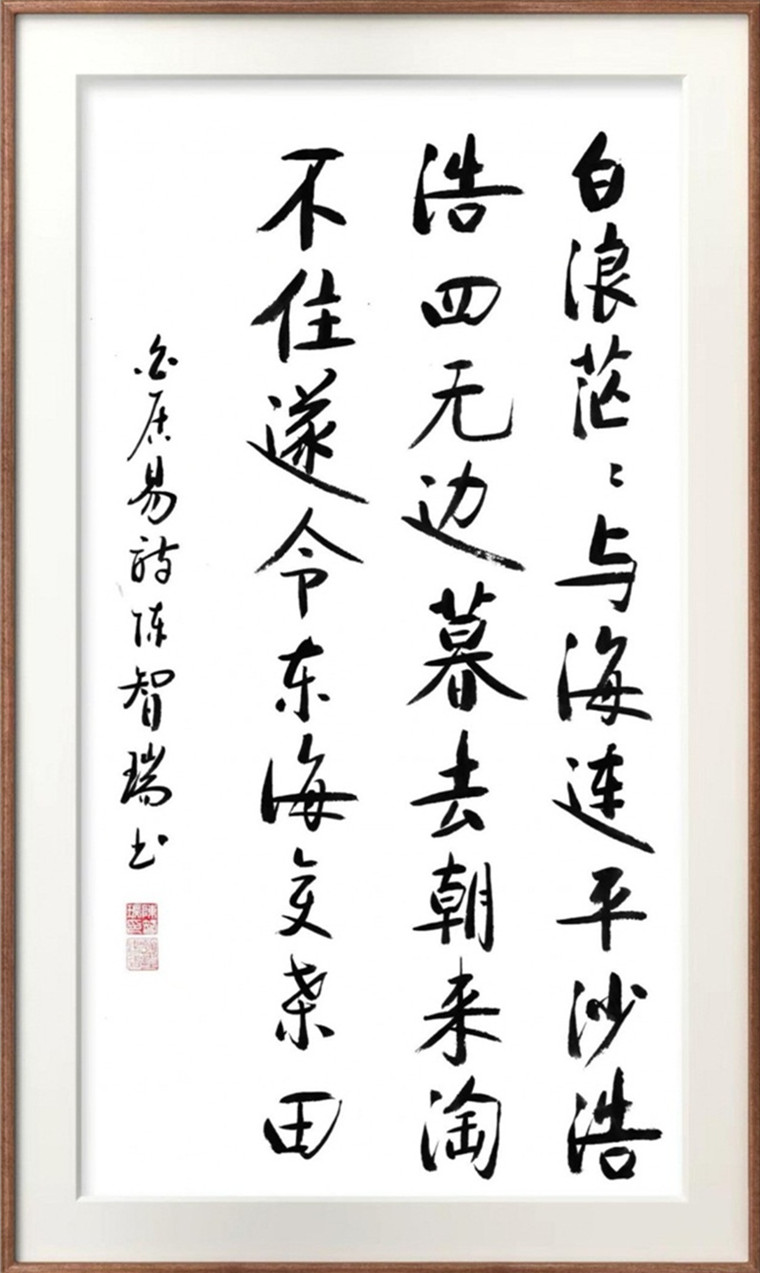 白浪茫〻与海连平沙浩
浩四无边暮去朝来淘
不住遂令东海变桑田
白居易诗陈智瑞书